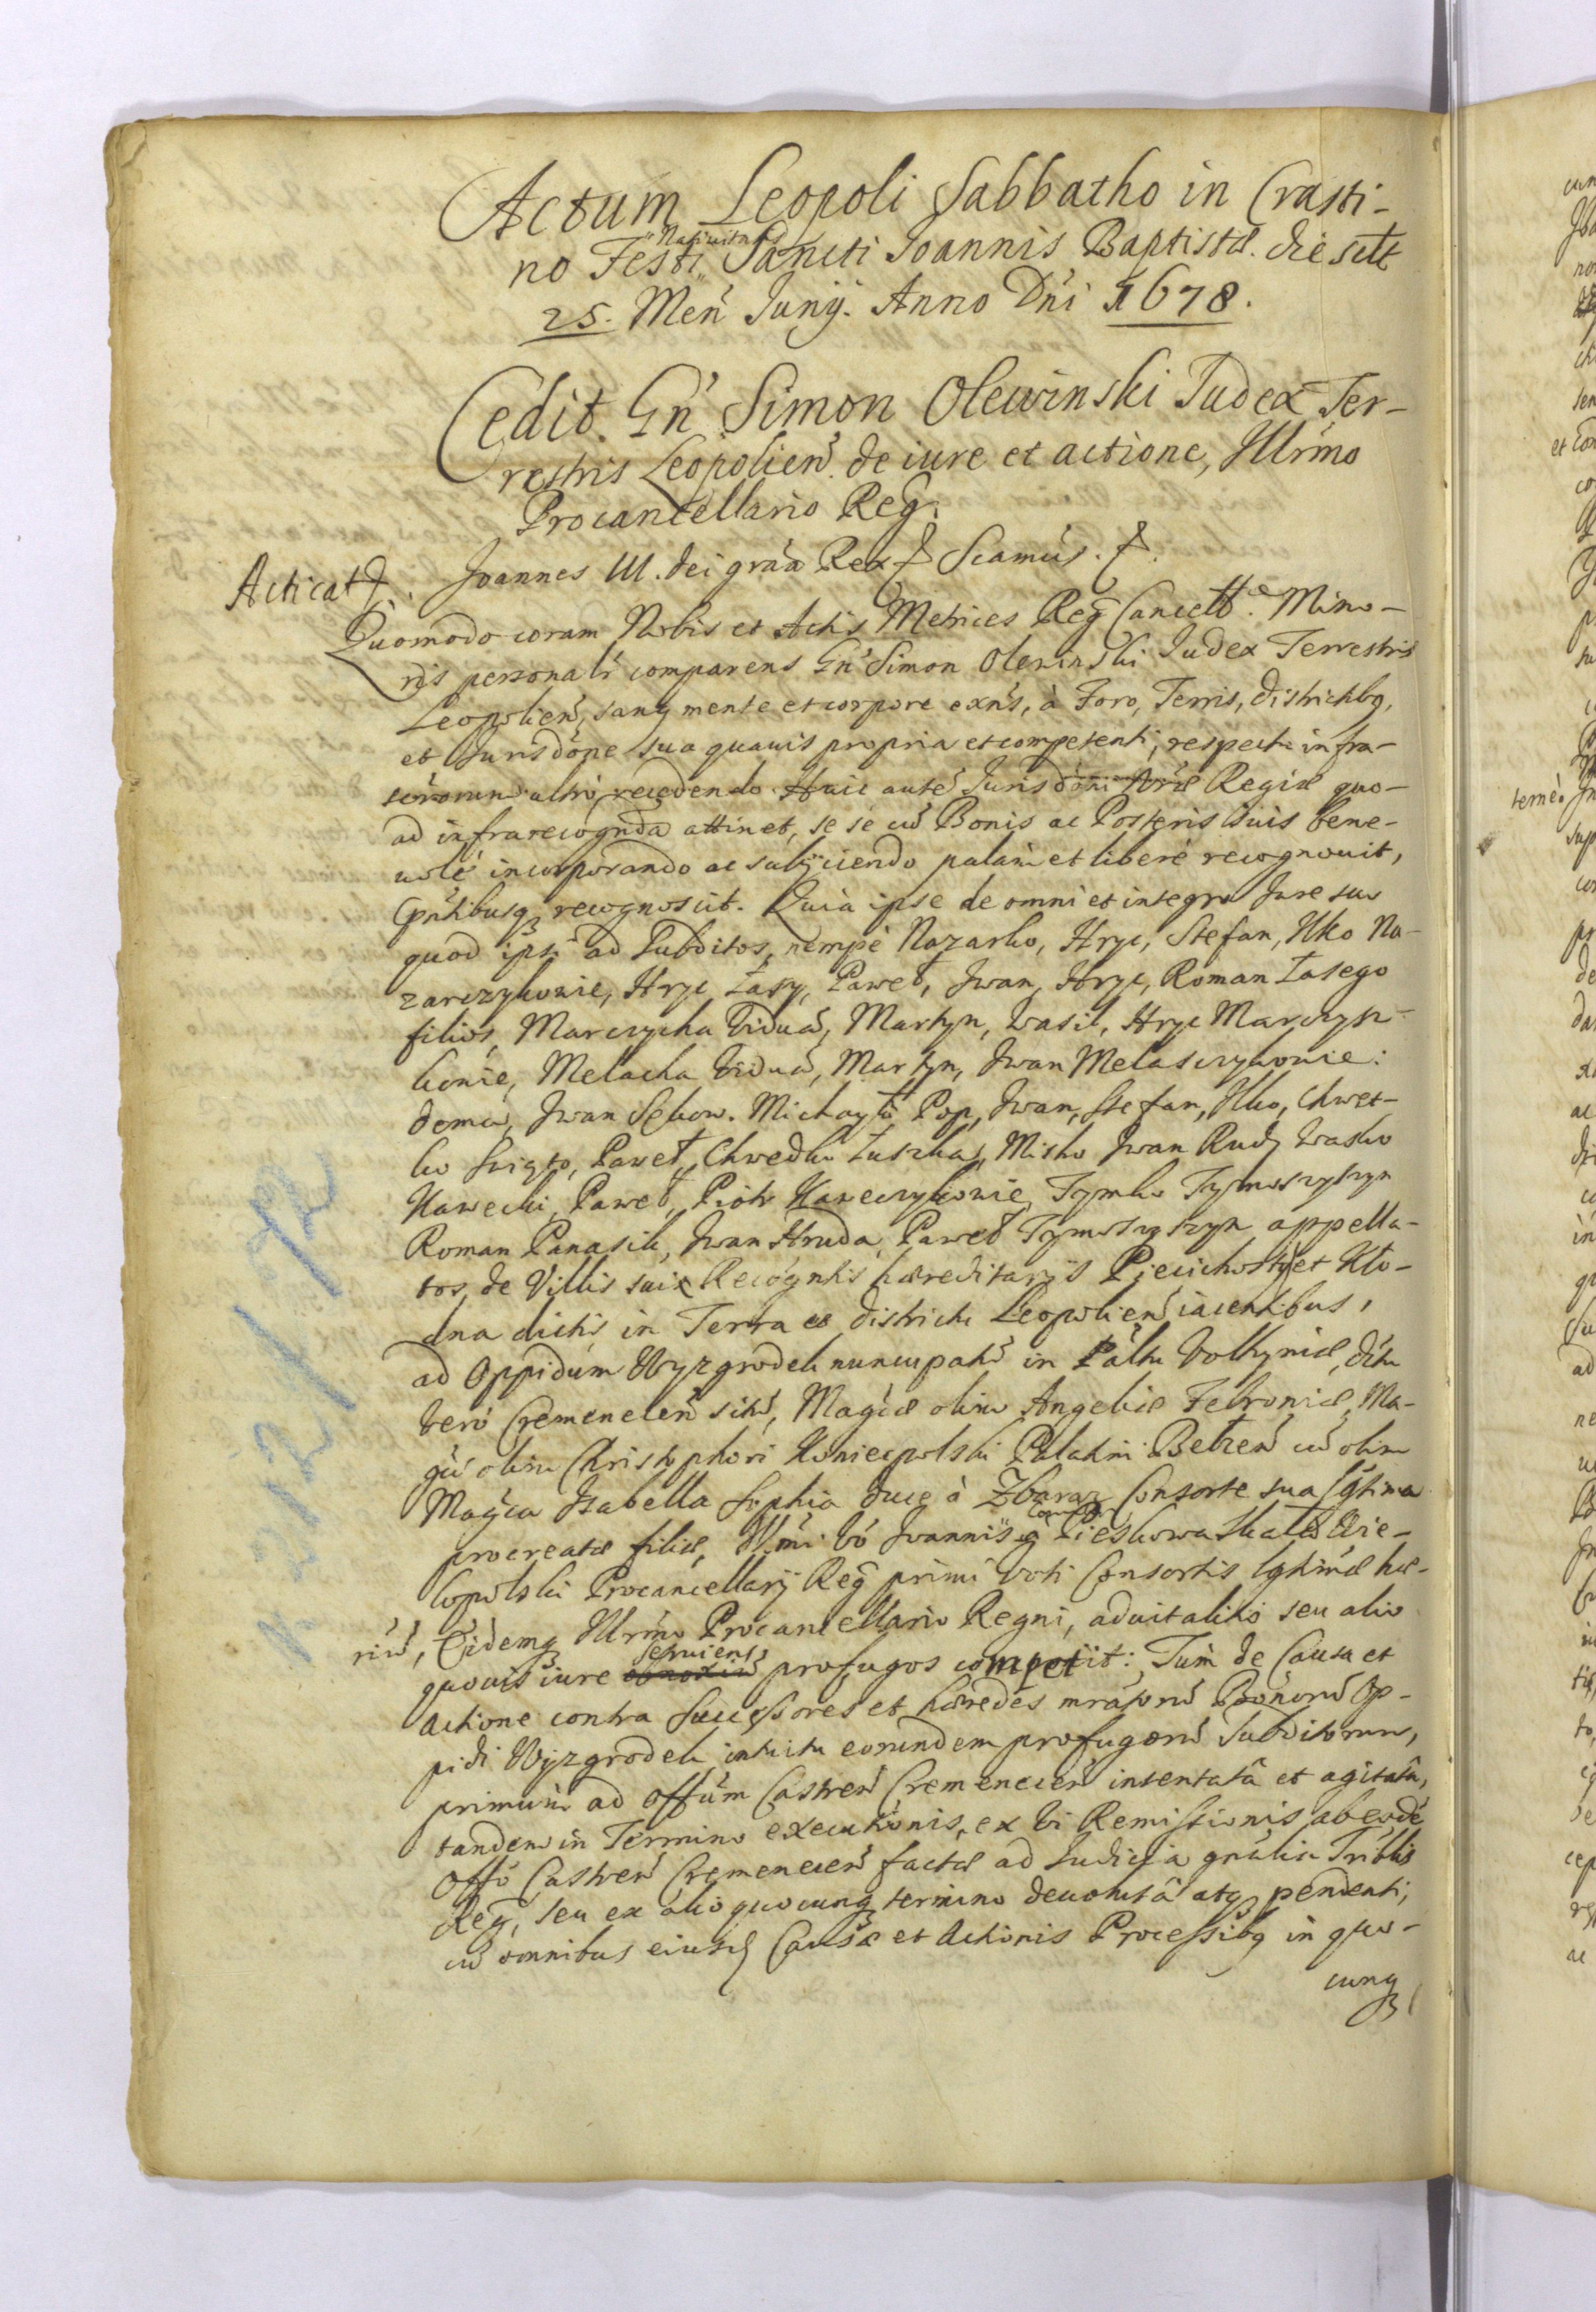 Actum Leopoli Sabbatho in Crasti-
no Festi Natiuitatis Sancti Joannis Baptistæ. die scilt
25. Men̄ Junij. Anno Dn̄i 1678.
Cedit. Gn̄ Simon Olewinski Judex Ter-
restris Leopolien̄. de iure et actione, Illrm̄o
Procancellario Reg̅.
Acticat
Joannes III. dei gra̅a Rex Scamus.
Quomodo coram Nobis et Actis Metrices Reg̅ Cancell. Mino-
ris personalr̄ comparens Gn̄ Simon Olewinski Judex Terrestris
Leopolien̄, sanq mente et corpore exn̄s, à Foro, Terris, districtibq,
et Jurisdōne sua quauis propria et competenti, respectu infra-
scr̄orum ultrò recedendo Huic autē Jurisdōni Regiæ quo-
ad infrarecogn̄da attinet, se se cū Bonis ac Posteris suis bene-
uolè incorporando ac subijciendo palàm et liberè recognouit,
Gn̄tibusq recognoscit. Quia ipse de omni et integro Jure suo
quod ipsi ad Subditos, nempè Nazarko, Hryc, Stefan, Ilko Na-
zarczykowie, Hryc Łasy, Paweł, Jwan, Hryc, Roman Łasego
filios, Marczycha Viduā, Martyn, Wasil, Hryc Marczysz-
kowie, Melacha Viduā, Martyn, Jwan Melasczykowie:
Jwan Sekow. Michayło Pop, Jwan, Stefan, Ilko, Chwet-
ko Paweł, Chwedko Łuszka, Misko Jwan Rudy Wasko
Kawecki, Paweł, Piotr Kaweczykowie, Tymko Tymoszyszyn
Roman Panasik, Jwan Hruda, Paweł Tymoszyszyn appella-
tos, de Villis suis Recogn̄tis hæreditarijs Pieczichosty et Kło-
dna dictis in Terra et districtu Leopolien̄ iacentibus,
ad Oppidum Wyzgrodek nuncupatū in Pal̄tu Volhyniæ, dītu
verò Cremenecen̄ sitū, Magc̄æ olim Angelicæ Febroniæ, Ma-
gc̄i olim Christophori Koniecpolski Palatini Bełzen̄ cū olim
Magc̄a Isabella Sophia duce à Zbaraz Consorte sua lgt̄ima
procreatæ filiæ, Illm̄i vò Joannis Comitis à Pieskowa Skała Wie-
lopolski Procancellarij Reg̅ primi voti Consortis lgt̄imæ hæ-
riū, Eidemq Illrm̄o Procancellario Regni, aduitalitio seu alio
quouis iure Seruiens profugos competijt: Tum de Causa et
Actione contra Successores et hæredes mratorū Bonorū Op-
pidi Wyzgrodek intuitu eorundem profugorū Subditorum,
primum ad Offūm Castren̄ Cremenecen̄ intentatâ et agitatâ,
tandem in Termino executionis, ex vi Remissionis ab eodē
Offō Castren̄ Cremenecen̄ factæ ad Judicia gnalia Tribl̄is
Reg̅, seu ex alio quocunq termino deuolutâ atq pendenti,
cū omnibus eiusd Causæ et Actionis Processibq in quo-
cunq